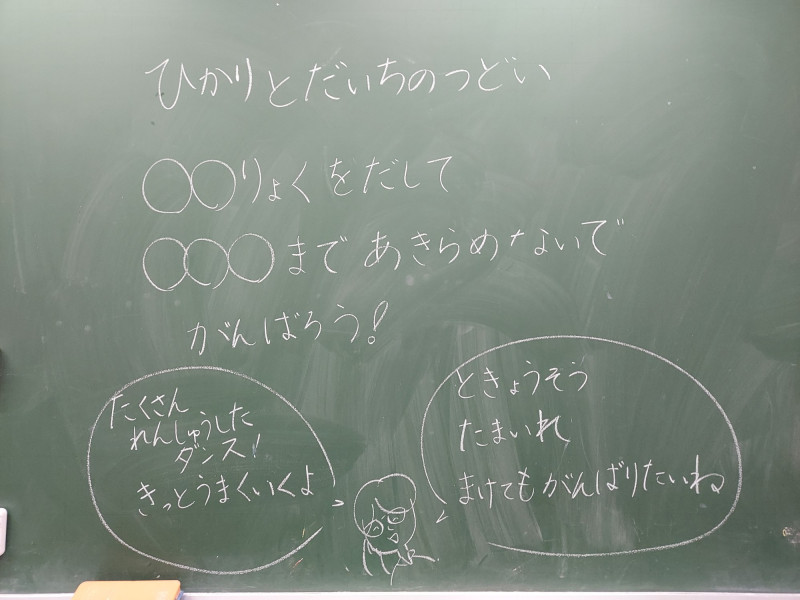 ひかりとだいちのつどい
○○りょくをだして
○○○まであきらめないで
がんばろう!
たくさん
れんしゅうした
ダンス!
きっとうまくいくよ
ときょうそう
たまいれ
まけてもがんばりたいね